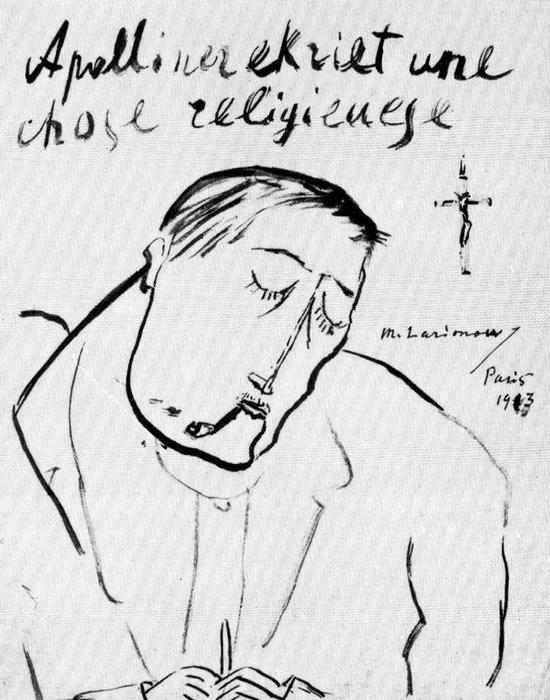 Apollinerekriet une
chose religieuese
M. Larionow
Paris
1913